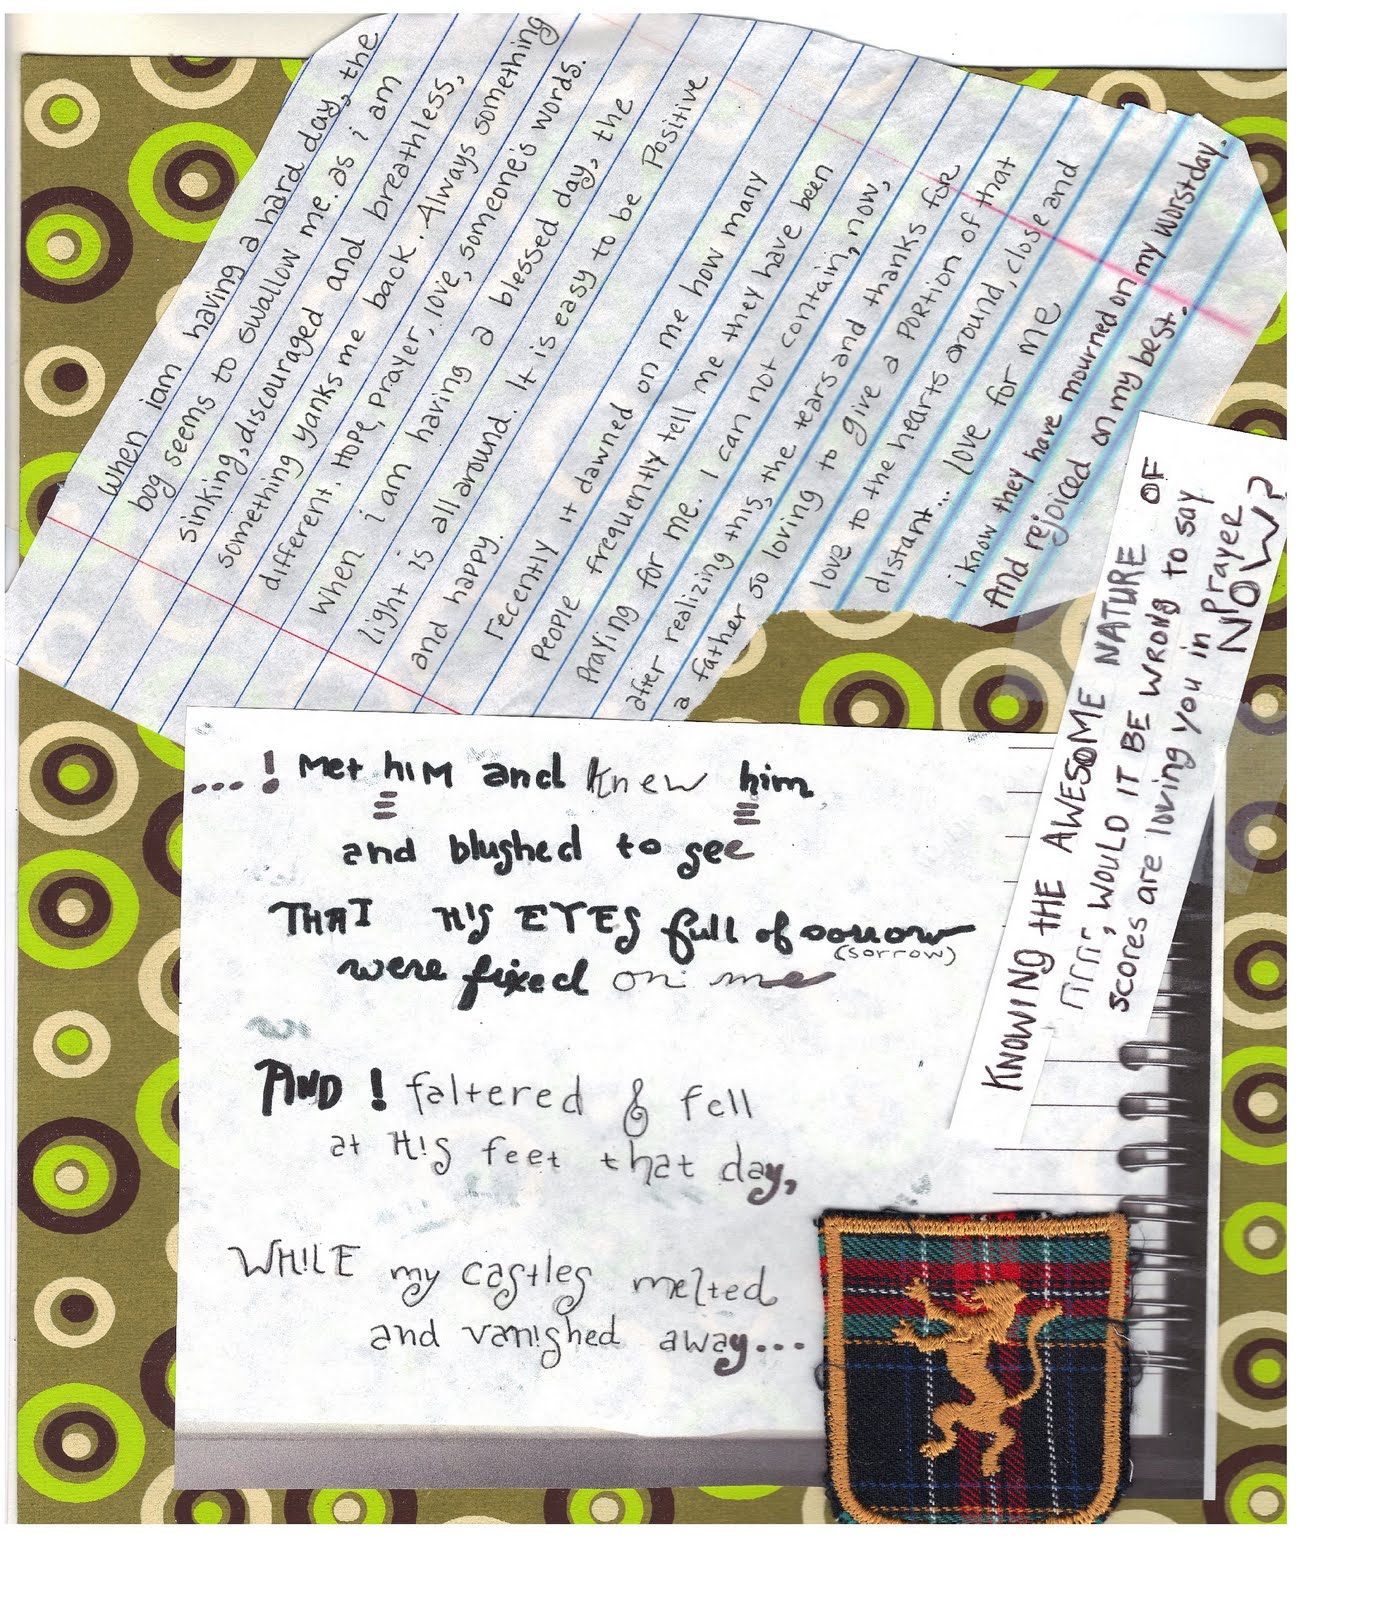 When i am having a hard day, the
bog seems to swallow me. as i am
sinking, discouraged and breathless,
something yanks me back. Always something
different. Hope, Prayer, love, someone's words.
When i am having a blessed day, the
light is all around. It is easy to be Positive
and happy.
recently it dawned on me how many
People frequently tell me they have been
Praying for me. I can not contain, now,
after realizing this, the tears and thanks for
a father so loving to give a Portion of that
love to the hearts around, close and
distant... love for me
i know they have mourned on my worst day.
And rejoiced on my best.
KNOWING THE AWESOME NATURE OF
WOULD IT BE WRONG to SAY
scores are loving you in Prayer
NOW?
....! Met hiM and Knew him
and blushed to see
THAT HIS EYES full of sorrow
(sorrow)
were fixed on me
AND ! faltered & fell
at H!s feet that day,
WH!LE my castles melted
and van!shed away...